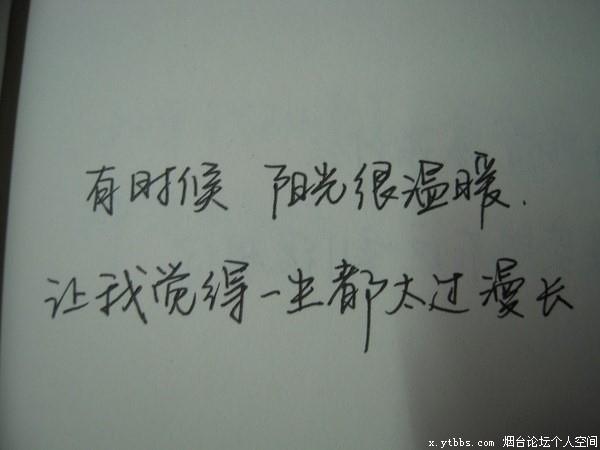 有时候 阳光很温暖.
让我觉得一生都太过漫长
x.ytbbs.com 烟台论坛个人空间